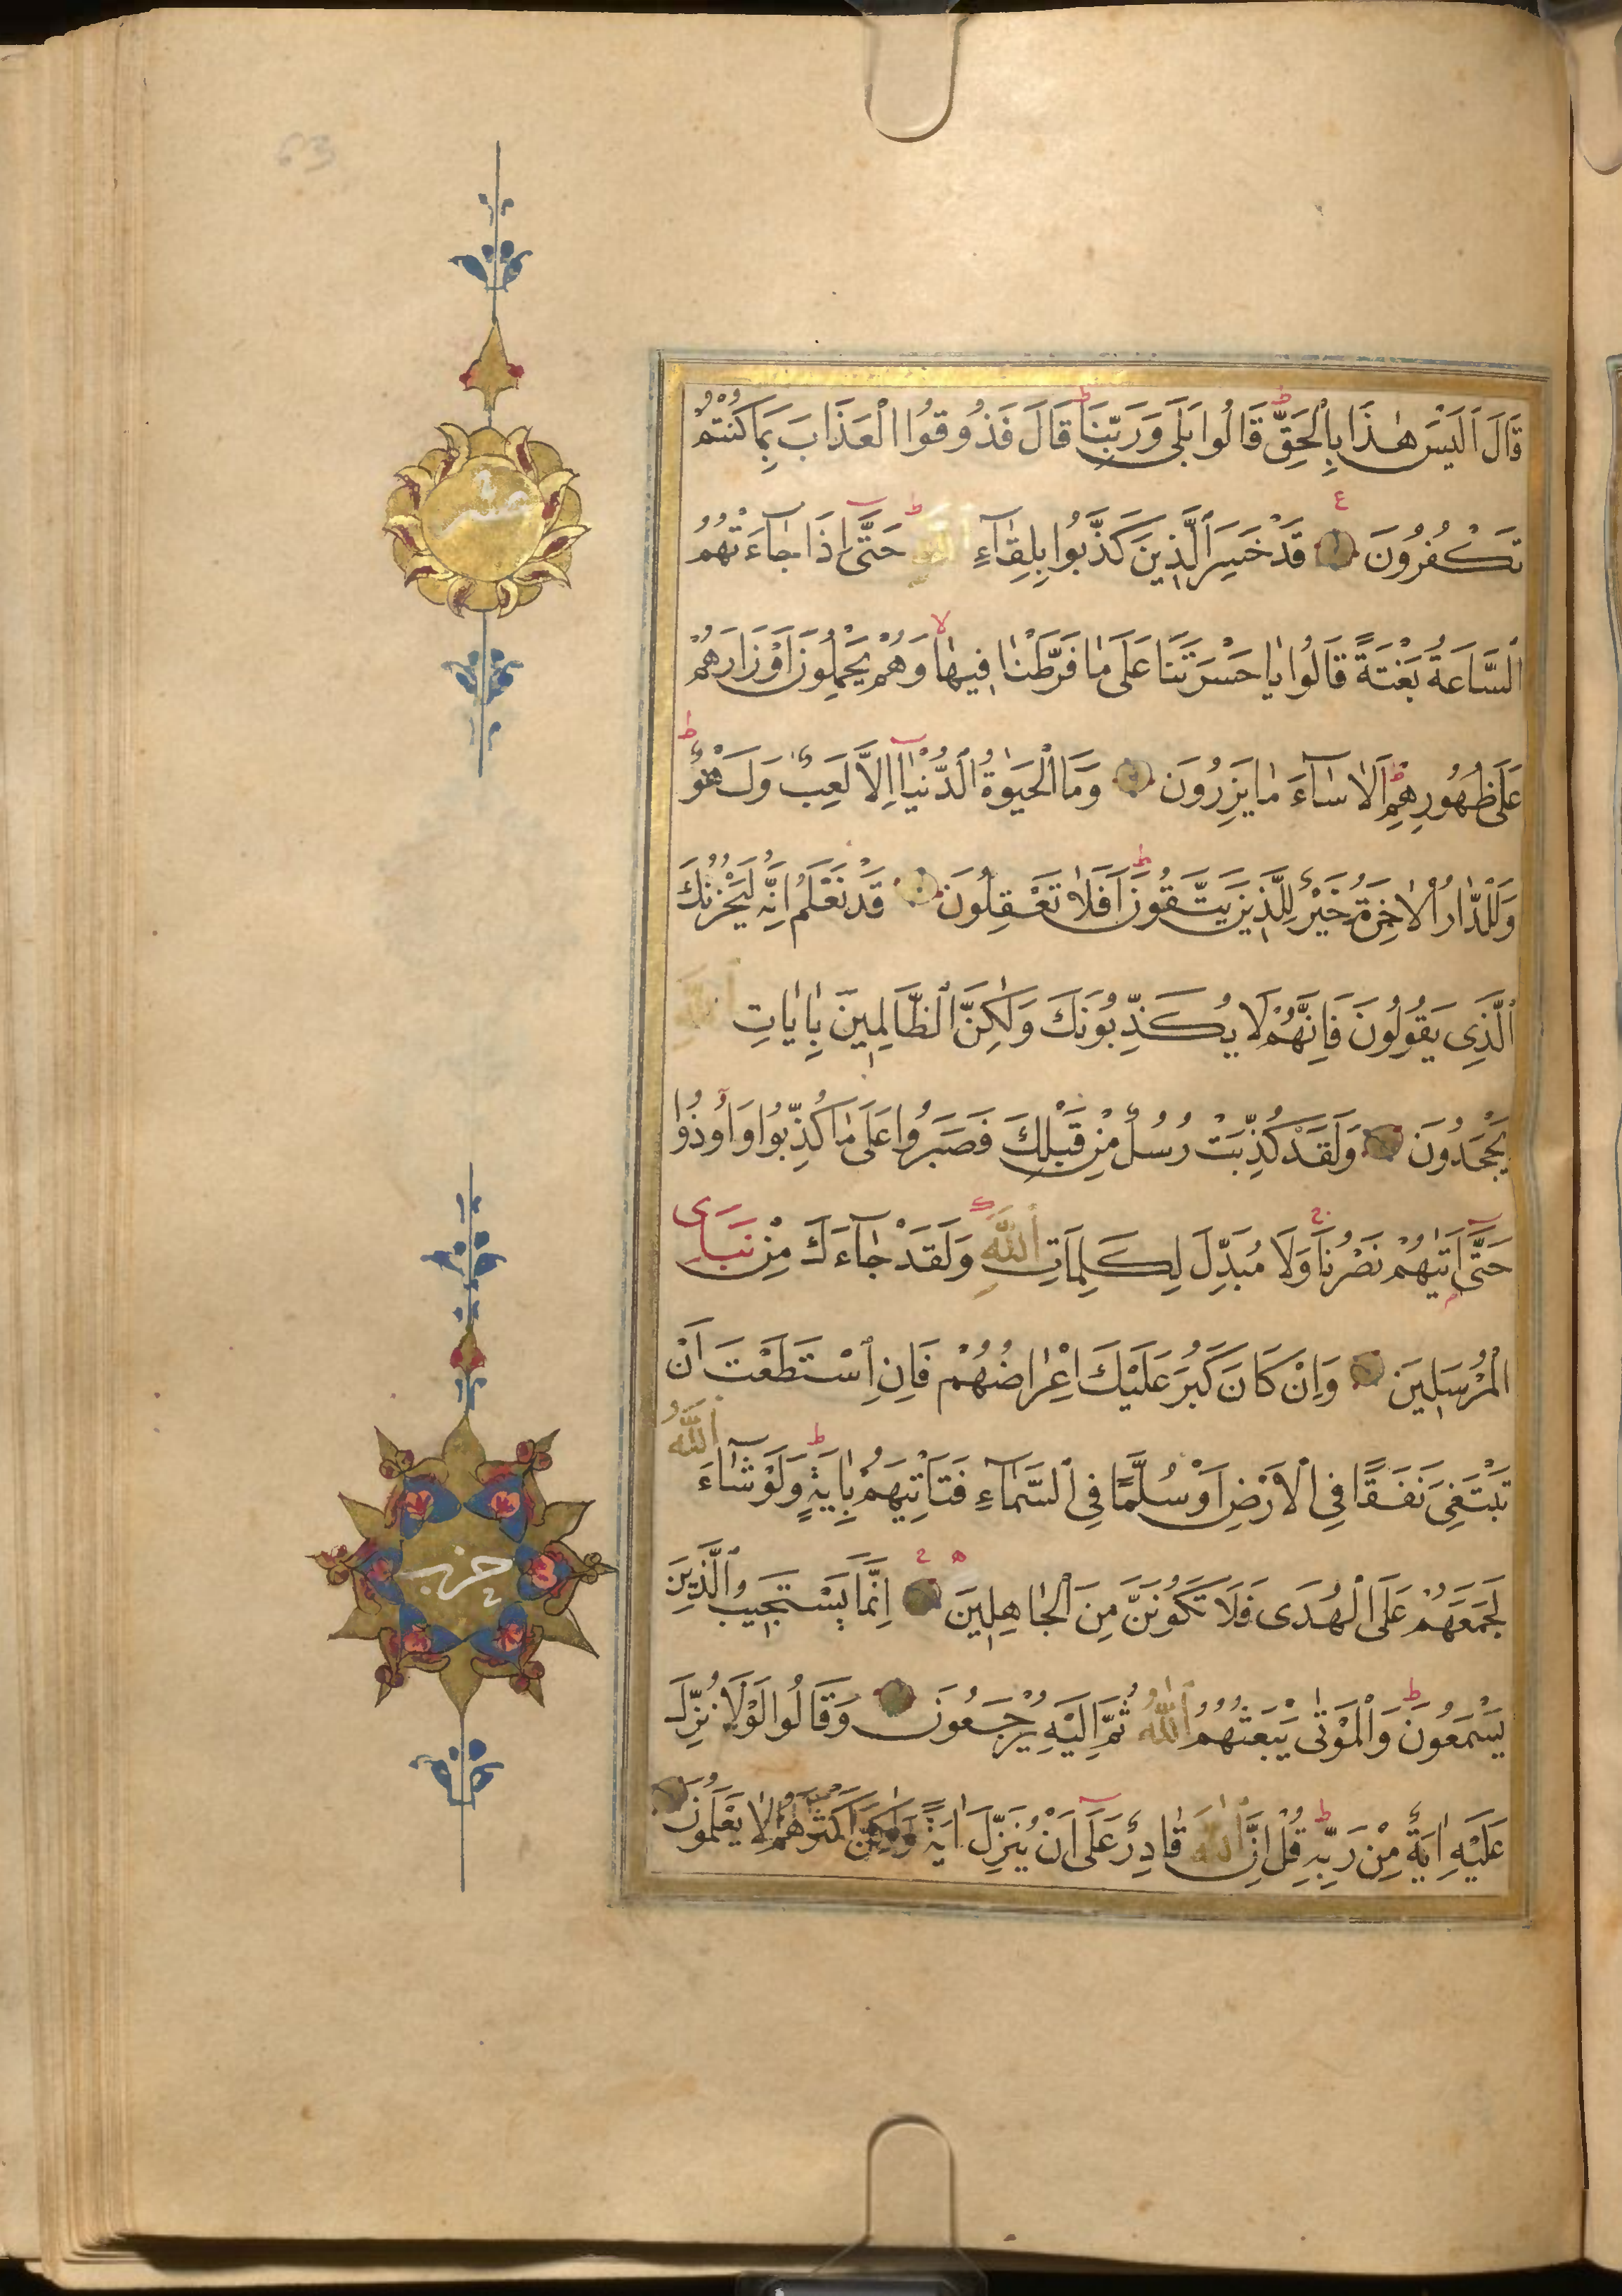 قَالَ اَلَيْسَ هٰذَا بِالْحَقِّ قَالُوا بَلٰى وَرَبِّنَا قَالَ فَذُوقُوا الْعَذَابَ بِمَا كُنْتُمْ
تَكْفُرُونَ قَدْ خَسِرَ الَّذِينَ كَذَّبُوا بِلِقَاۤءِ اللّٰهِ حَتّٰۤى اِذَا جَاۤءَتْهُمُ
السَّاعَةُ بَغْتَةً قَالُوا يَا حَسْرَتَنَا عَلٰى مَا فَرَّطْنَا فِيهَا وَهُمْ يَحْمِلُونَ اَوْزَارَهُمْ
عَلٰى ظُهُورِهِمْ اَلَا سَاۤءَ مَا يَزِرُونَ وَمَا الْحَيٰوةُ الدُّنْيَاۤ اِلَّا لَعِبٌ وَلَهْوٌ
وَلَلدَّارُ الْاٰخِرَةُ خَيْرٌ لِلَّذِينَ يَتَّقُونَ اَفَلَا تَعْقِلُونَ قَدْ نَعْلَمُ اِنَّهُ لَيَحْزُنُكَ
الَّذِى يَقُولُونَ فَاِنَّهُمْ لَا يُكَذِّبُونَكَ وَلٰكِنَّ الظَّالِمِينَ بِاٰيَاتِ اللّٰهِ
يَجْحَدُونَ وَلَقَدْ كُذِّبَتْ رُسُلٌ مِنْ قَبْلِكَ فَصَبَرُوا عَلٰى مَا كُذِّبُوا وَاُوذُوا
حَتّٰۤى اَتٰيهُمْ نَصْرُنَا وَلَا مُبَدِّلَ لِكَلِمَاتِ اللّٰهِ وَلَقَدْ جَاۤءَكَ مِنْ نَبَاِى
الْمُرْسَلِينَ وَاِنْ كَانَ كَبُرَ عَلَيْكَ اِعْرَاضُهُمْ فَاِنِ اسْتَطَعْتَ اَنْ
تَبْتَغِىَ نَفَقًا فِى الْاَرْضِ اَوْ سُلَّمًا فِى السَّمَاۤءِ فَتَاْتِيَهُمْ بِاٰيَةٍ وَلَوْ شَاۤءَ اللّٰهُ
لَجَمَعَهُمْ عَلَى الْهُدٰى فَلَا تَكُونَنَّ مِنَ الْجَاهِلِينَ اِنَّمَا يَسْتَجِيبُ الَّذِينَ
يَسْمَعُونَ وَالْمَوْتٰى يَبْعَثُهُمُ اللّٰهُ ثُمَّ اِلَيْهِ يُرْجَعُونَ وَقَالُوا لَوْلَا نُزِّلَ
عَلَيْهِ اٰيَةٌ مِنْ رَبِّهِ قُلْ اِنَّ اللّٰهَ قَادِرٌ عَلٰۤى اَنْ يُنَزِّلَ اٰيَةً وَلٰكِنَّ اَكْثَرَهُمْ لَا يَعْلَمُونَ
عشر
حزب
63